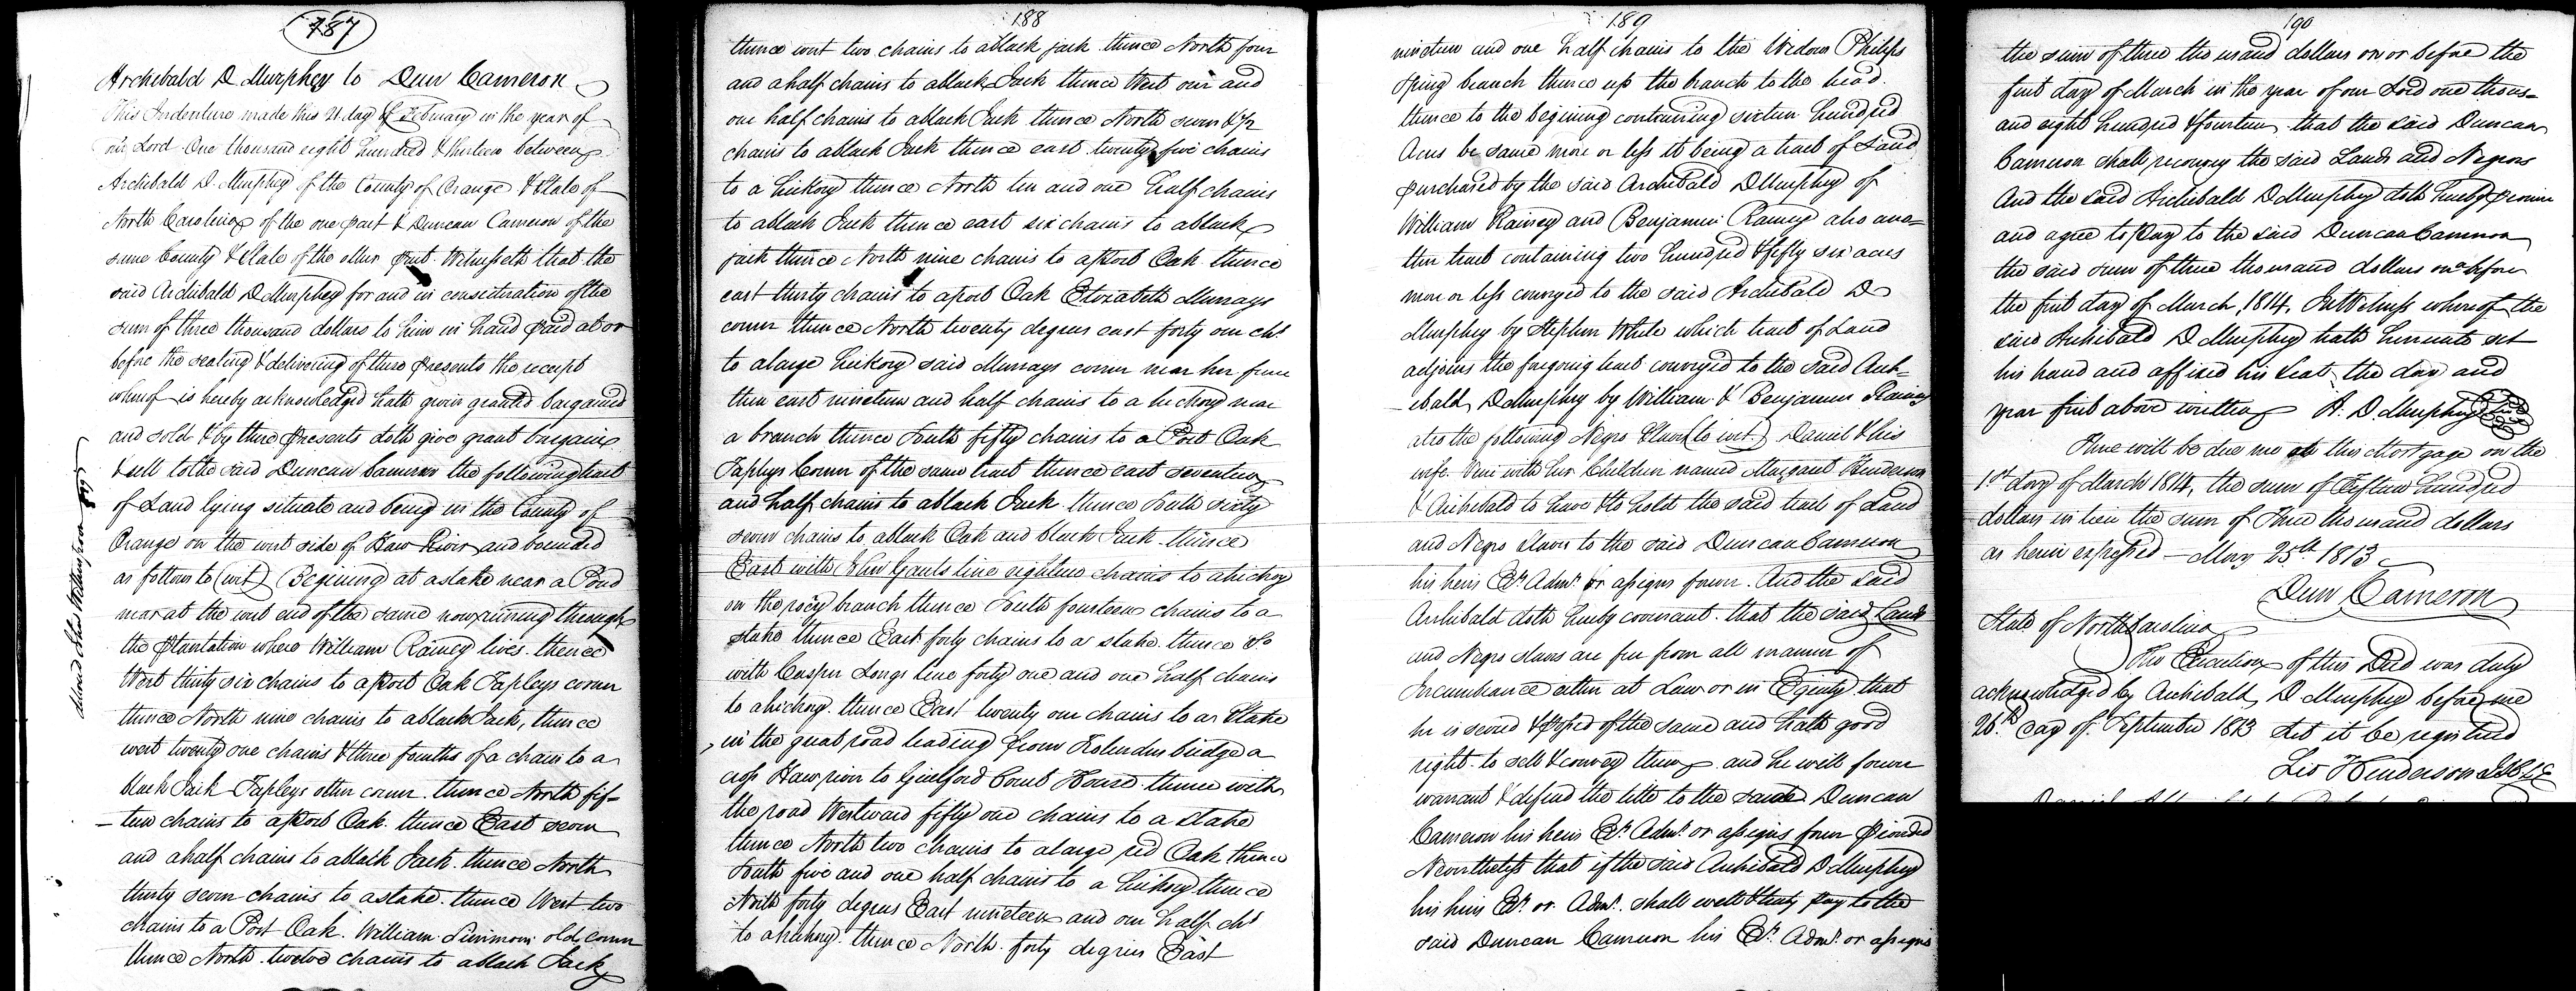 187
Archibald D Murphey to Dun Cameron
This Indenture made this 21 day of February in the year of
our Lord One thousand eight hundred & thirteen between
Archibald D. Murphey of the County of Orange & State of
North Carolina of the one part & Duncan Cameron of the
same County & State of the other part. Witnesseth that the
said Archibald D Murphey for and in consideration of the
sum of three thousand dollars to him in hand paid at or
before the sealing & delivering of these presents the receipt
whereof is hereby acknowledged hath given granted bargained
and sold & by these presents doth give grant bargain
& sell to the said Duncan Cameron the following tract
of Land lying situate and being in the County of
Orange on the west side of Haw River and bounded
as follows to (wit) Begining at a stake near a Pond
near at the west end of the same now running through
the plantation where William Rainey lives. thence
West thirty six chains to a post Oak Tapleys corner
thence North nine chains to a black Jack, thence
west twenty one chains & three fourths of a chain to a
black Jack Tapleys other corner. thence North fif-
-teen chains to a post Oak. thence East seven
and a half chains to a black Jack. thence North
thirty seven chains to a stake. thence West two
chains to a Post Oak. William Simmons old corner
thence North twelve chains to a black Jack
188
thence west two chains to a black jack thence North four
and a half chains to a black Jack thence West one and
one half chains to a black Jack thence North seven & 1/2
chains to a black Jack thence east twenty five chains
to a hickory thence North ten and one half chains
to a black Jack thence east six chains to a black
jack thence North nine chains to a post Oak thence
east thirty chains to a post Oak Elizabeth Murrays
corner thence North twenty degrees east forty one chs.
to a large hickory said Murrays corner near her fence
then east nineteen and half chains to a hickory near
a branch thence South fifty chains to a Post Oak
Tapleys Corner of the same tract thence east seventeen
and half chains to a black Jack thence South sixty
seven chains to a black Oak and black Jack. thence
East with John Gants line eighteen chains to a hickory
on the rocky branch thence South fourteen chains to a
stake thence East forty chains to a stake. thence So
with Casper Longs line forty one and one half chains
to a hickory. thence East twenty one chains to a Stake
in the great road leading from bridge a
cross Haw river to Guilford Court House thence with
the road Westward fifty one chains to a stake
thence North two chains to a large red Oak thence
South five and one half chains to a hickory thence
North forty degrees East nineteen and one half chs
to a hickory. thence North forty degrees East
189
nineteen and one half chains to the Widow Philips
spring branch thence up the branch to the head.
thence to the begining containing sixteen hundred
Acres be same more or less it being a tract of Land
purchased by the said Archibald D Murphey of
William Rainey and Benjamin Rainey also ano=
ther tract containing two hundred & fifty six acres
more or less conveyed to the said Archibald D
Murphey by Stephen White which tract of Land
adjoins the foregoing tract conveyed to the said Arch=
-ibald D Murphey by William & Benjamin Rainey
also the following Negro Slaves (to wit.) Daniel & his
wife with her Children named Margaret Henderson
& Archibald to have & to hold the said tracts of Land
and Negro Slaves to the said Duncan Cameron
his heirs Exr. Admr. or assigns forever. And the said
Archibald doth hereby covenant. that the said Lands
and Negro slaves are free from all manner of
Incumbrance either at Law or in Equity that
he is seized & possessed of the same and hath good
right to sell & convey them and he will forever
warrant & defend the title to the said Duncan
Cameron his heirs Exr. Admr. or assigns forever Provided
Nevertheless that if the said Archibald D Murphey
his heirs Exr. or Admr. shall well & truly pay to the
said Duncan Cameron his Exr. Admr. or assigns
190
the sum of three thousand dollars on or before the
first day of March in the year of our Lord one thous=
and eight hundred & fourteen, that the said Duncan
Cameron shall reconvey the said Lands and Negroes
And the said Archibald D Murphey doth hereby promise
and agree to pay to the said Duncan Cameron
the said sum of three thousand dollars on or before
the first day of March, 1814. In Witness whereof the
said Archibald D Murphey hath hereunto set
his hand and affixed his seal the day and
year first above written A. D. Murphey
There will be due me on this Mortgage on the
1st day of March 1814, the sum of Fifteen hundred
dollars in lieu the sum of Three thousand dollars
as herein expressed - May 25th 1813
Dun Cameron
State of North Carolina
The Execution of this Deed was duly
acknowledged by Archibald D Murphey before me
26th day of September 1813 Let it be registered
Leo Henderson